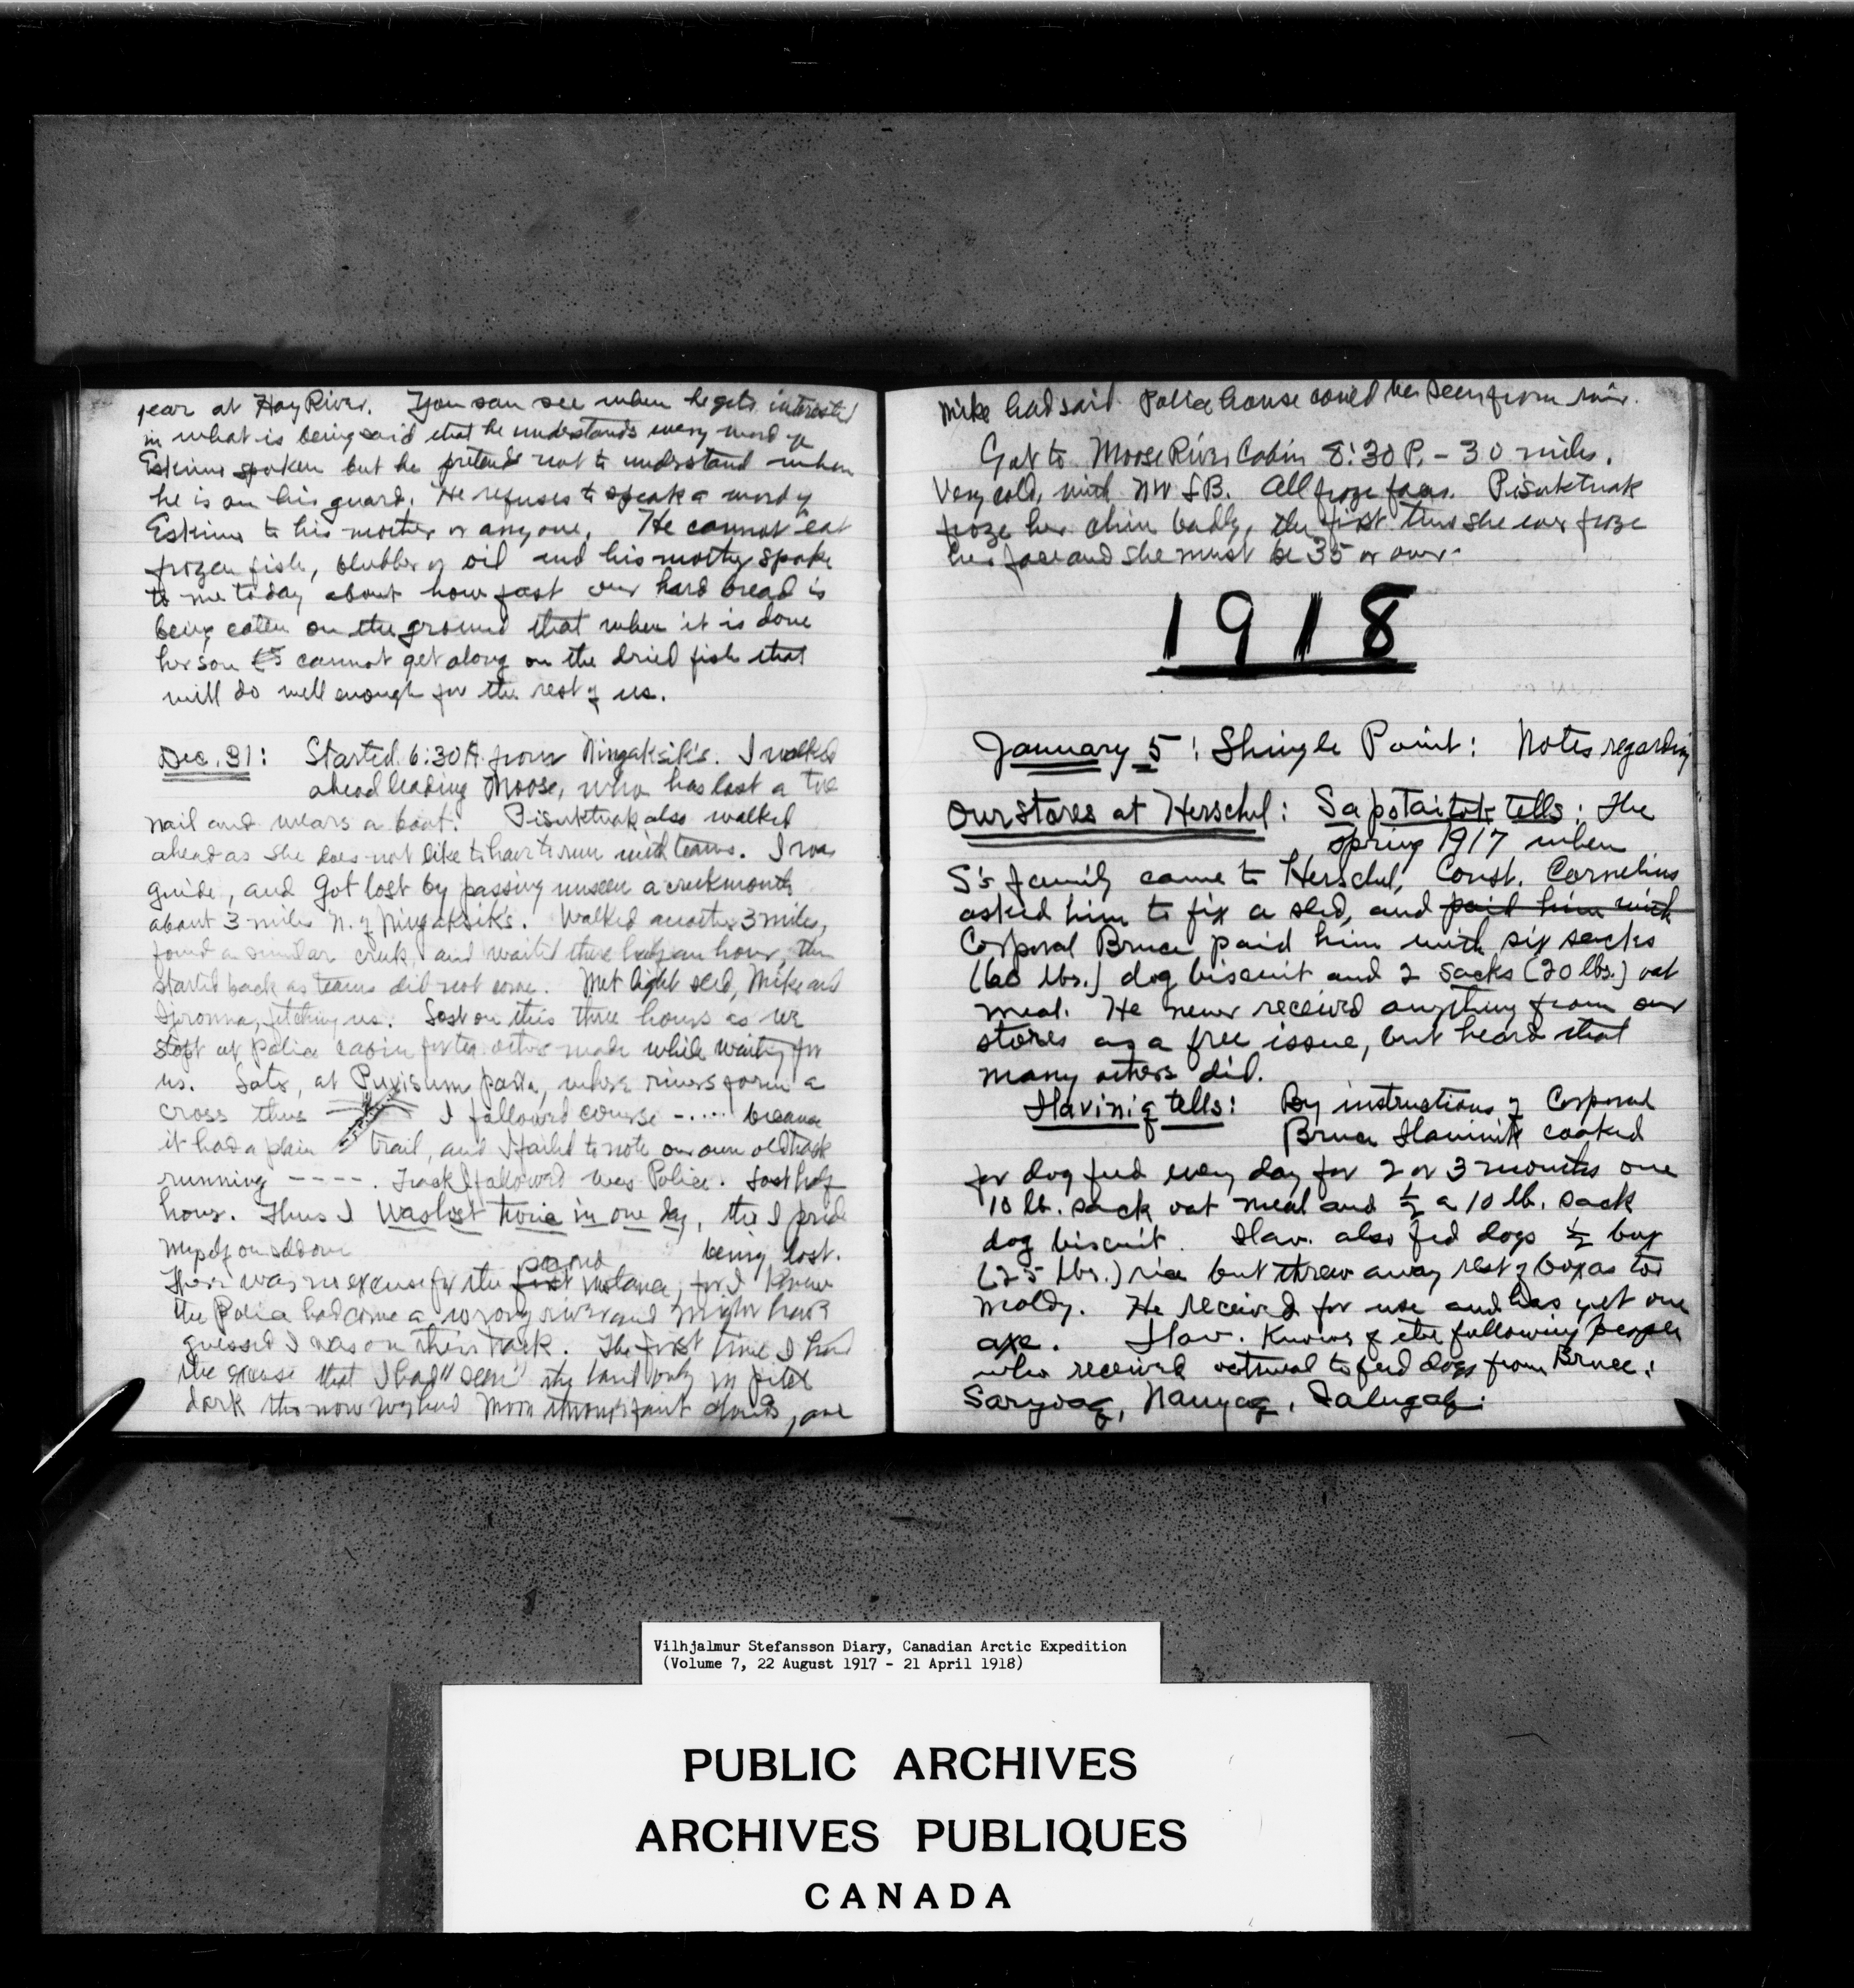 year at Hay River. You can see when he gets interested
in what is being said that he understands every word of
Eskimo spoken but he pretends not to understand when
he is on his guard. He refuses to speak a word of
Eskimo to his mother or anyone. He cannot eat
frozen fish, blubber or oil and his mother spoke
to me today about how fast our hard bread is
being eaten on the ground that when it is done
her son cannot get along on the dried fish that
will do well enough for the rest of us.
Dec. 31: Started 6:30 A from Ningaksik's. I walked
ahead leading Moose, who has lost a toe
nail and wears a boot. Pisuktuak also walked
ahead as she does not like to have to run with teams. I was
guide, and got lost by passing unseen a creek mouth
about 3 miles N. of Ningaksik's. Walked another 3 miles,
found a similar creek, and waited there half an hour, then
started back as teams did not come. Met light sled, Mike and
fetching us. Lost on this three hours as we
stopt at Police cabin for tea others made while waiting for
us. Later, at where rivers form a
cross thus I followed course -.... because
it had a plain trail, and I failed to note our own old track
running ----. Track I followed was Police. Lost half
hour. Thus I was lost twice in one day, tho I pride
myself on seldom being lost.
second
There was no excuse for the first instance, for I knew
the Police had come a wrong river and might have
guessed I was on their track. The first time I had
the excuse that I had "seen" the land only in pitch
dark tho now we had moon through faint clouds, and
Mike had said Police house could be seen from river.
Got to Moose River Cabin 8:30 P. - 30 miles.
Very cold, with NW LB. All froze faces. Pisuktuak
froze her chin badly, the first time she ever froze
her face and she must be 35 or over.
1918
January 5: Shingle Point: Notes regarding
our stores at Herschel: Sapotaitok tells: The
spring 1917 when
S's family came to Herschel, Const. Cornelius
asked him to fix a sled, and paid him with
Corporal Bruce paid him with six sacks
(60 lbs.) dog biscuit and 2 sacks (20 lbs.) oat
meal. He never received anything from our
stores as a free issue, but heard that
many others did.
Ilaviniq tells: By instructions of Corporal
Bruce Ilavinik cooked
for dog feed every day for 2 or 3 months one
10 lb. sack oat meal and ½ a 10 lb. sack
dog biscuit. Ilav. also fed dogs ½ box
(25 lbs.) rice but threw away rest of box as too
moldy. He received for use and has yet one
axe. Ilav. knows of the following people
who received oatmeal to feed dogs from Bruce:
Vilhjalmur Stefansson Diary, Canadian Arctic Expedition
(Volume 7, 22 August 1917 - 21 April 1918)
PUBLIC ARCHIVES
ARCHIVES PUBLIQUES
CANADA